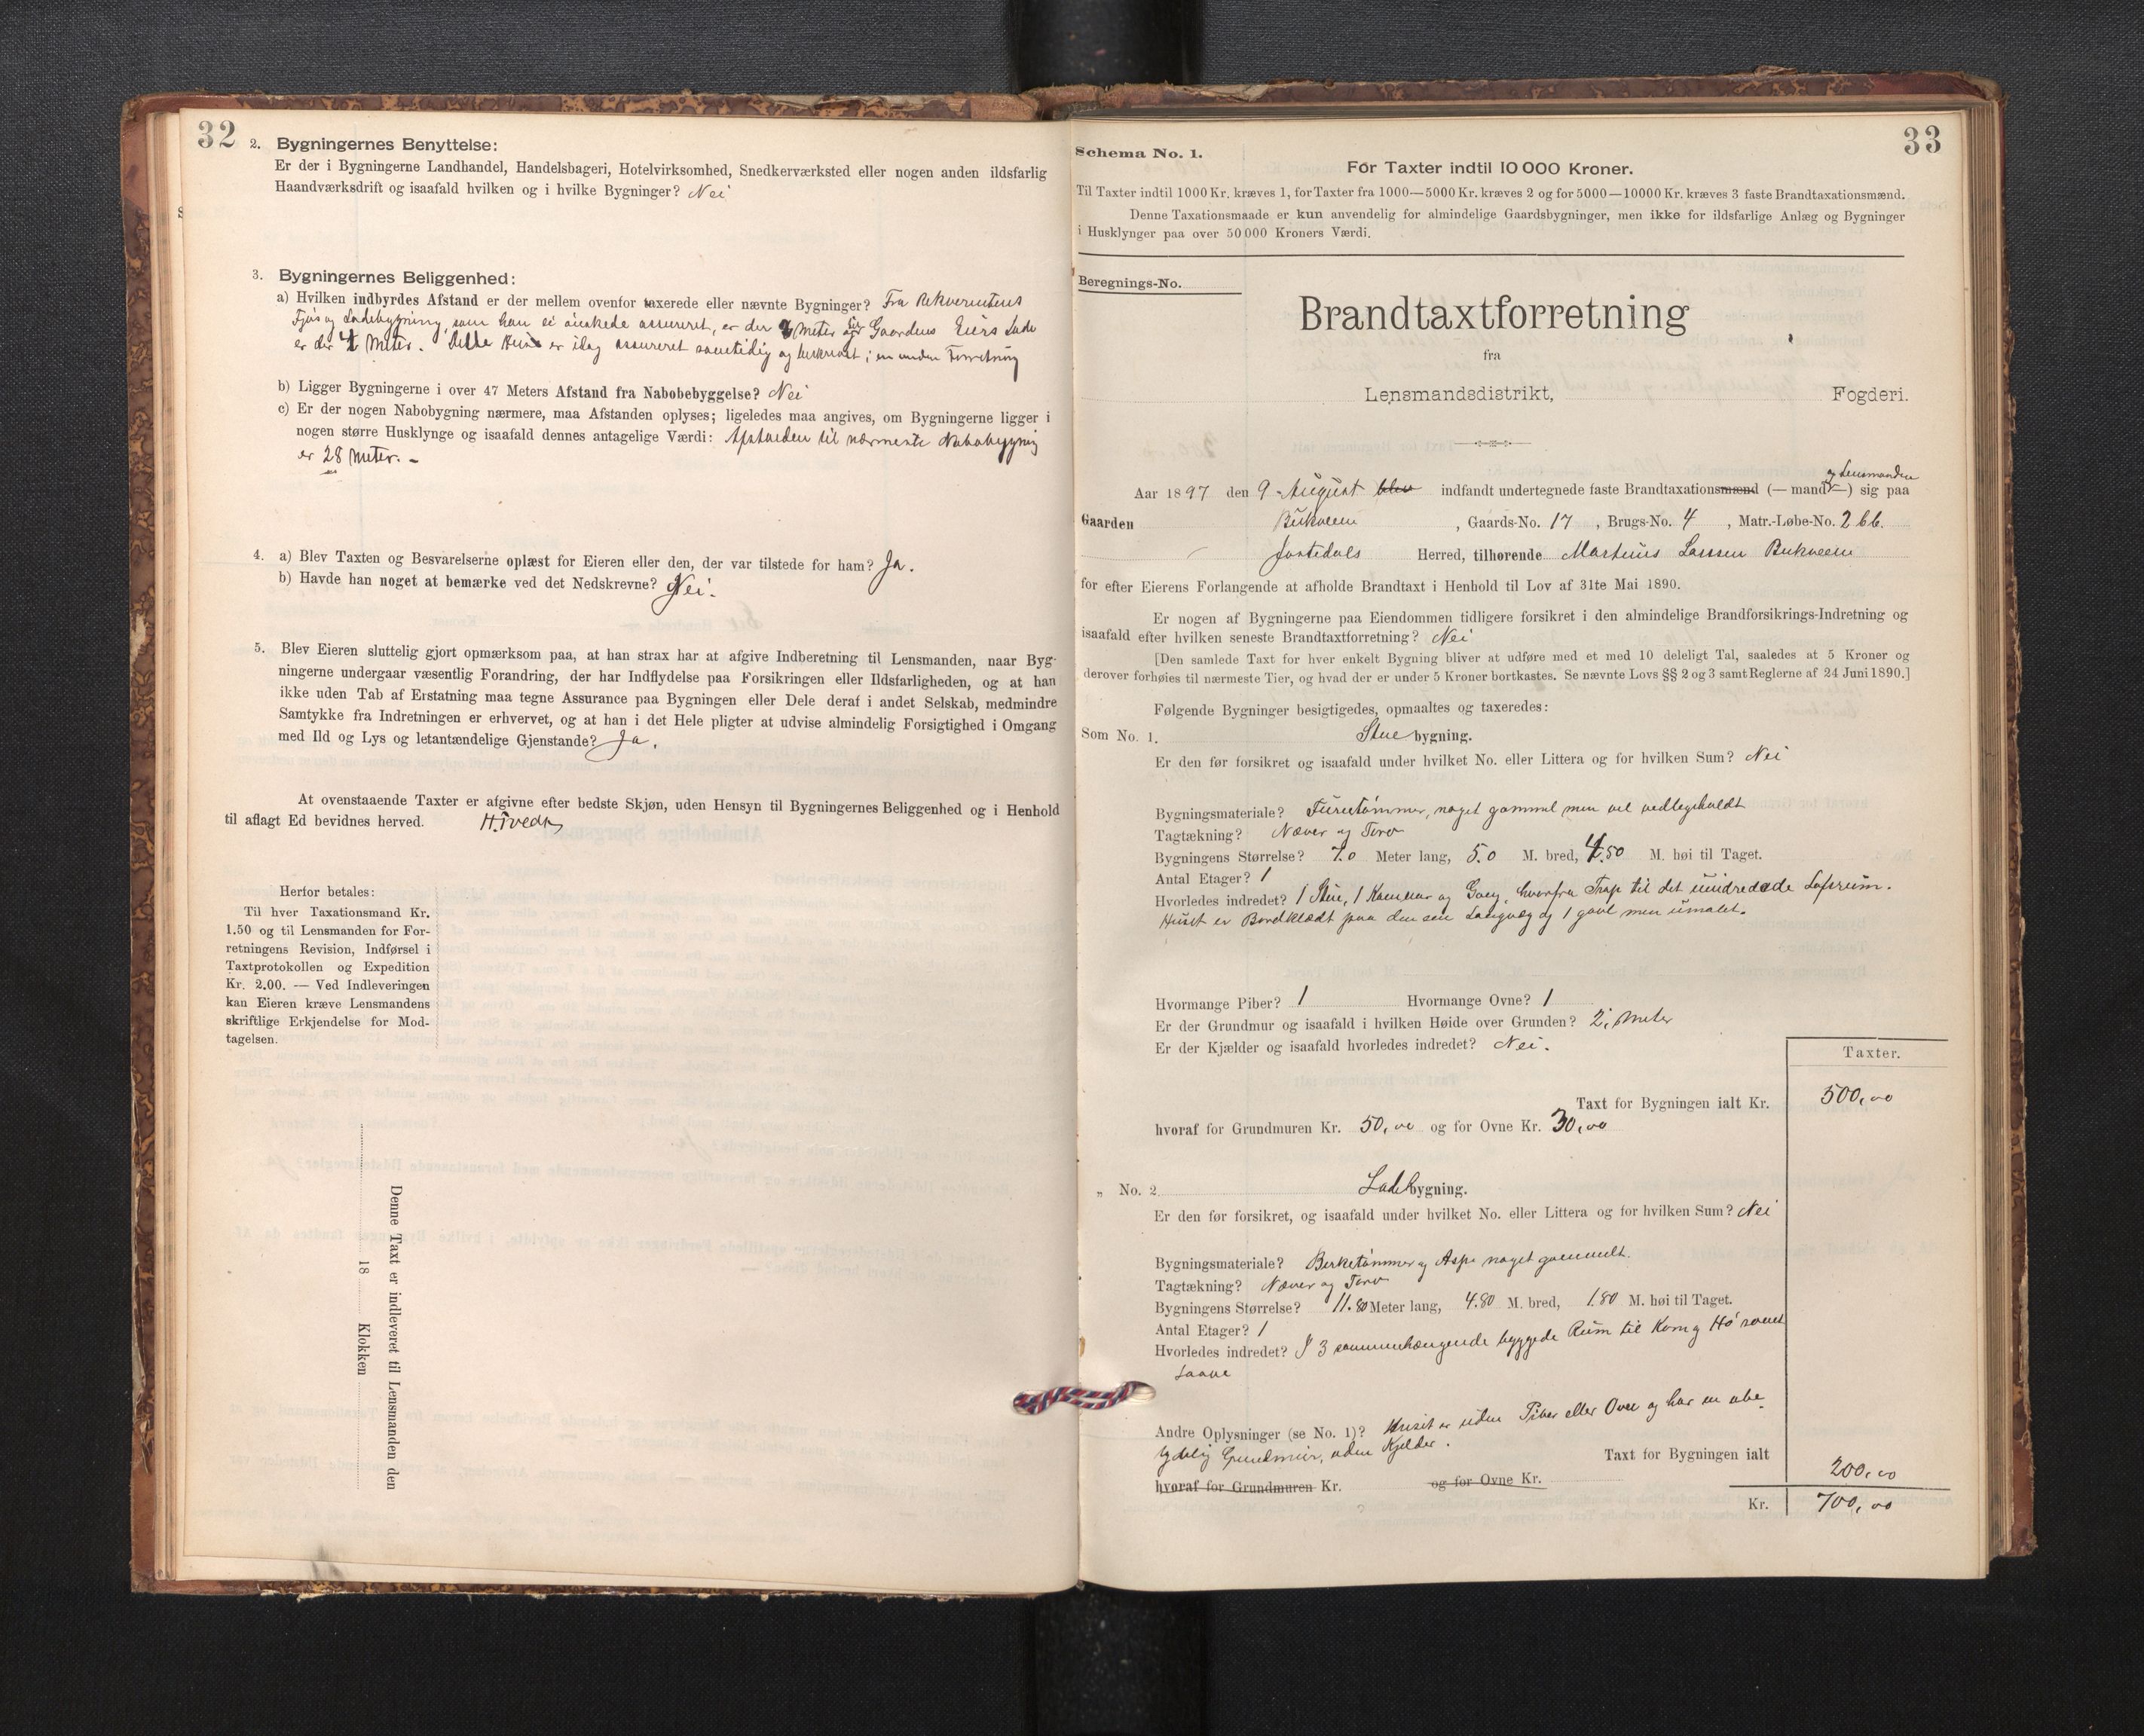 32
2. Bygningernes Benyttelse:
Er der i Bygningerne Landhandel, Handelsbageri, Hotelvirksomhed, Snedkerværksted eller nogen anden ildsfarlig
Haandværksdrift og isaafald hvilken og i hvilke Bygninger? Nei
3. Bygningernes Beliggenhed:
a) Hvilken indbyrdes Afstand er der mellem ovenfor taxerede eller nævnte Bygninger? Fra Rekvirentens
Fjøs og Ladebygning, som han ei ønskede assureret, er der Meter og Gaardens Eiers Lade
er der 4 Meter. Dette Huus er idag assureret samtidig og beskrevet i en anden Forretning
b) Ligger Bygningerne i over 47 Meters Afstand fra Nabobebyggelse? Nei
c) Er der nogen Nabobygning nærmere, maa Afstanden oplyses; ligeledes maa angives, om Bygningerne ligger i
nogen større Husklynge og isaafald dennes antagelige Værdi: Afstanden til nærmeste Nabobygning
er 28 Meter. -
4. a) Blev Taxten og Besvarelserne oplæst for Eieren eller den, der var tilstede for ham? Ja.
b) Havde han noget at bemærke ved det Nedskrevne? Nei.
5. Blev Eieren sluttelig gjort opmærksom paa, at han strax har at afgive Indberetning til Lensmanden, naar Byg-
ningerne undergaar væsentlig Forandring, der har Indflydelse paa Forsikringen eller Ildsfarligheden, og at han
ikke uden Tab af Erstatning maa tegne Assurance paa Bygningen eller Dele deraf i andet Selskab, medmindre
Samtykke fra Indretningen er erhvervet, og at han i det Hele pligter at udvise almindelig Forsigtighed i Omgang
med Ild og Lys og letantændelige Gjenstande? Ja.
At ovenstaaende Taxter er afgivne efter bedste Skjøn, uden Hensyn til Bygningernes Beliggenhed og i Henhold
til aflagt Ed bevidnes herved.
Herfor betales:
Til hver Taxationsmand Kr.
1.50 og til Lensmanden for For-
retningens Revision, Indførsel i
Taxtprotokollen og Expedition
Kr. 2.00. — Ved Indleveringen
kan Eieren kræve Lensmandens
skriftlige Erkjendelse for Mod-
tagelsen.
Denne Taxt er indleveret til Lensmanden den
18 Klokken
33
Schema No. 1.
For Taxter indtil 10 000 Kroner.
Til Taxter indtil 1000 Kr. kræves 1, for Taxter fra 1000—5000 Kr. kræves 2 og for 5000—10000 Kr. kræves 3 faste Brandtaxationsmænd.
Denne Taxationsmaade er kun anvendelig for almindelige Gaardsbygninger, men ikke for ildsfarlige Anlæg og Bygninger
i Husklynger paa over 50 000 Kroners Værdi.
Beregnings-No.
Brandtaxtforretning
fra
Lensmandsdistrikt, Fogderi.
og Lensmanden
Aar 1897 den 9 August blev indfandt undertegnede faste Brandtaxationsmænd (— mand —) sig paa
Gaarden Bukveen, Gaards-No. 17, Brugs-No. 4, Matr.-Løbe-No. 2bb.
Jostedals Herred, tilhørende Martinus Larssen Bukveen
for efter Eierens Forlangende at afholde Brandtaxt i Henhold til Lov af 31te Mai 1890.
Er nogen af Bygningerne paa Eiendommen tidligere forsikret i den almindelige Brandforsikrings-Indretning og
isaafald efter hvilken seneste Brandtaxtforretning? Nei
[Den samlede Taxt for hver enkelt Bygning bliver at udføre med et med 10 deleligt Tal, saaledes at 5 Kroner og
derover forhøies til nærmeste Tier, og hvad der er under 5 Kroner bortkastes. Se nævnte Lovs §§ 2 og 3 samt Reglerne af 24 Juni 1890.]
Følgende Bygninger besigtigedes, opmaaltes og taxeredes:
Som No. 1. Stuebygning.
Er den før forsikret og isaafald under hvilket No. eller Littera og for hvilken Sum? Nei
Bygningsmateriale? Furuetømmer, noget gammel men vel vedligeholdt
Tagtækning? Næver og Torv
Bygningens Størrelse? 7.0 Meter lang, 5.0 M. bred, 4.50 M. høi til Taget.
Antal Etager? 1
Hvorledes indredet? 1 Stue, 1 Kammer og Gang, hvorfra Trap til det uindredede Loftsrum.
Huset er Bordklædt paa den ene Langvæg og 1 gavl men umalet.
Hvormange Piber? 1 Hvormange Ovne? 1
Er der Grundmur og isaafald i hvilken Høide over Grunden? 2, Meter
Er der Kjælder og isaafald hvorledes indredet? Nei.
Taxter.
Taxt for Bygningen ialt Kr. 500,00
hvoraf for Grundmuren Kr. 50,00 og for Ovne Kr. 30,00
„ No. 2. Ladebygning.
Er den før forsikret, og isaafald under hvilket No. eller Littera og for hvilken Sum? Nei
Bygningsmateriale? Birketømmer og Asp noget gammelt.
Tagtækning? Næver og Torv
Bygningens Størrelse? 11.80 Meter lang, 4.80 M. bred, 1.80 M. høi til Taget.
Antal Etager? 1
Hvorledes indredet? I 3 sammenhængende byggede Rum til Korn og Hø samt
Laave
Andre Oplysninger (se No. 1)? Huset er uden Piber eller Ovne og har en ube-
tydelig Grundmur, uden Kjelder. Taxt for Bygningen ialt 200,00
hvoraf for Grundmuren Kr. og for Ovne Kr.
Kr. 700,00